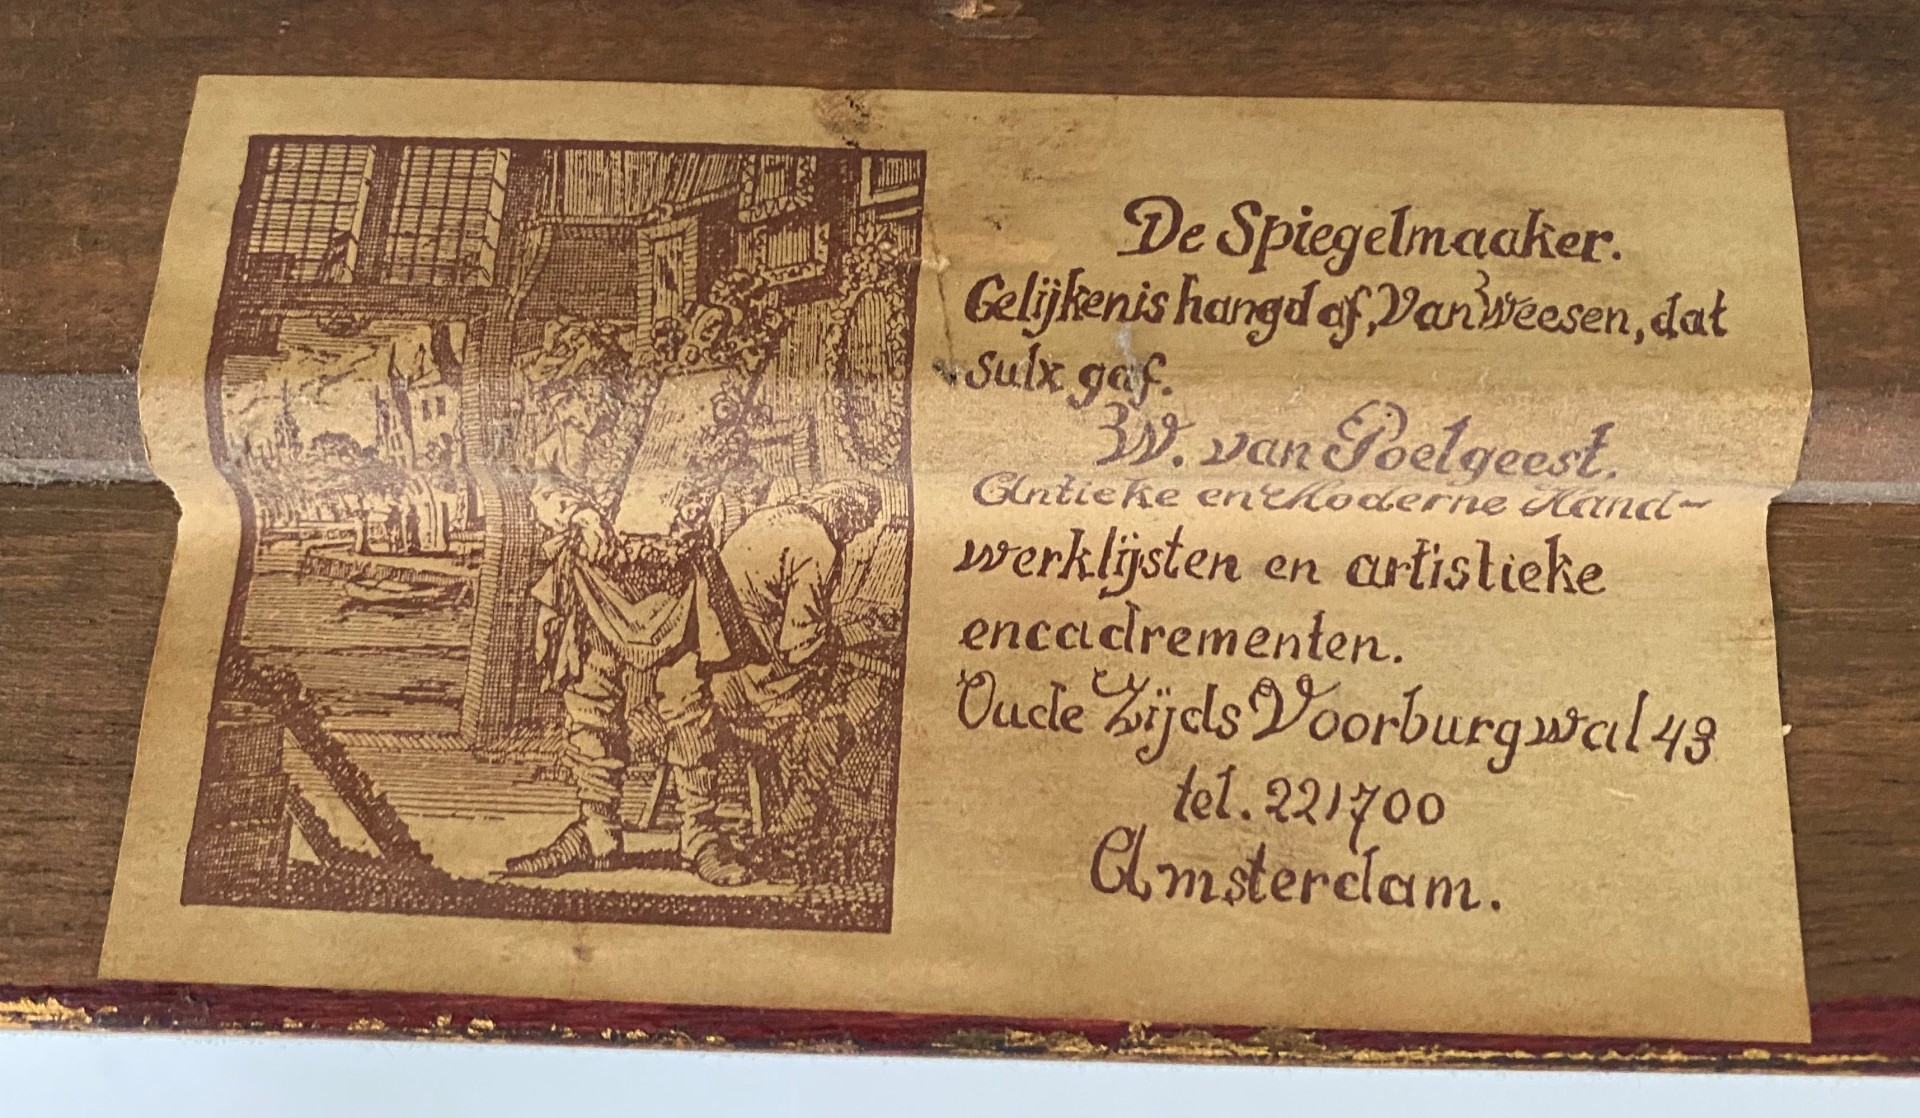 De Spiegelmaaker.
Gelijkenis hangd af, Van Weesen, dat
sulx gaf.
W. van Poelgeest.
Antieke en Moderne Hand-
werklijsten en artistieke
encadrementen.
Oude Zijds Voorburgwal 43
tel. 221700
Amsterdam.